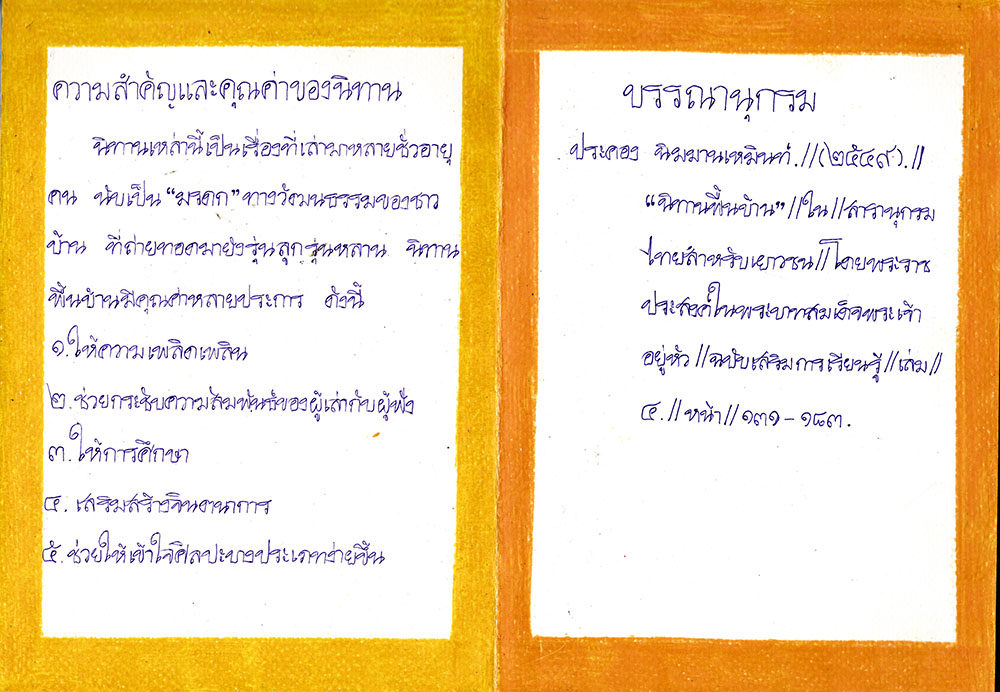 ความสำคัญและคุณค่าของนิทาน
นิทานเหล่านี้เป็นเรื่องที่เล่ามาหลายชั่วอายุ
คน นับเป็น “มรดก” ทางวัฒนธรรมของชาว
บ้าน ที่ถ่ายทอดมายังรุ่นลูกรุ่นหลาน นิทาน
พื้นบ้านมีคุณค่าหลายประการ ดังนี้
๑. ให้ความเพลิดเพลิน
๒. ช่วยกระชับความสัมพันธ์ของผู้เล่ากับผู้ฟัง
๓. ให้การศึกษา
๔. เสริมสร้างจินตนาการ
๕. ช่วยให้เข้าใจศิลปะบางประเภทง่ายขึ้น
บรรณานุกรม
ประคอง นิมมานเหมินท์.//(๒๕๔๙).//
“นิทานพื้นบ้าน”//ใน//สารานุกรม
ไทยสำหรับเยาวชน//โดยพระราช
ประสงค์ในพระบาทสมเด็จพระเจ้า
อยู่หัว//ฉบับเสริมการเรียนรู้//เล่ม//
๔.//หน้า//๑๓๑-๑๘๓.